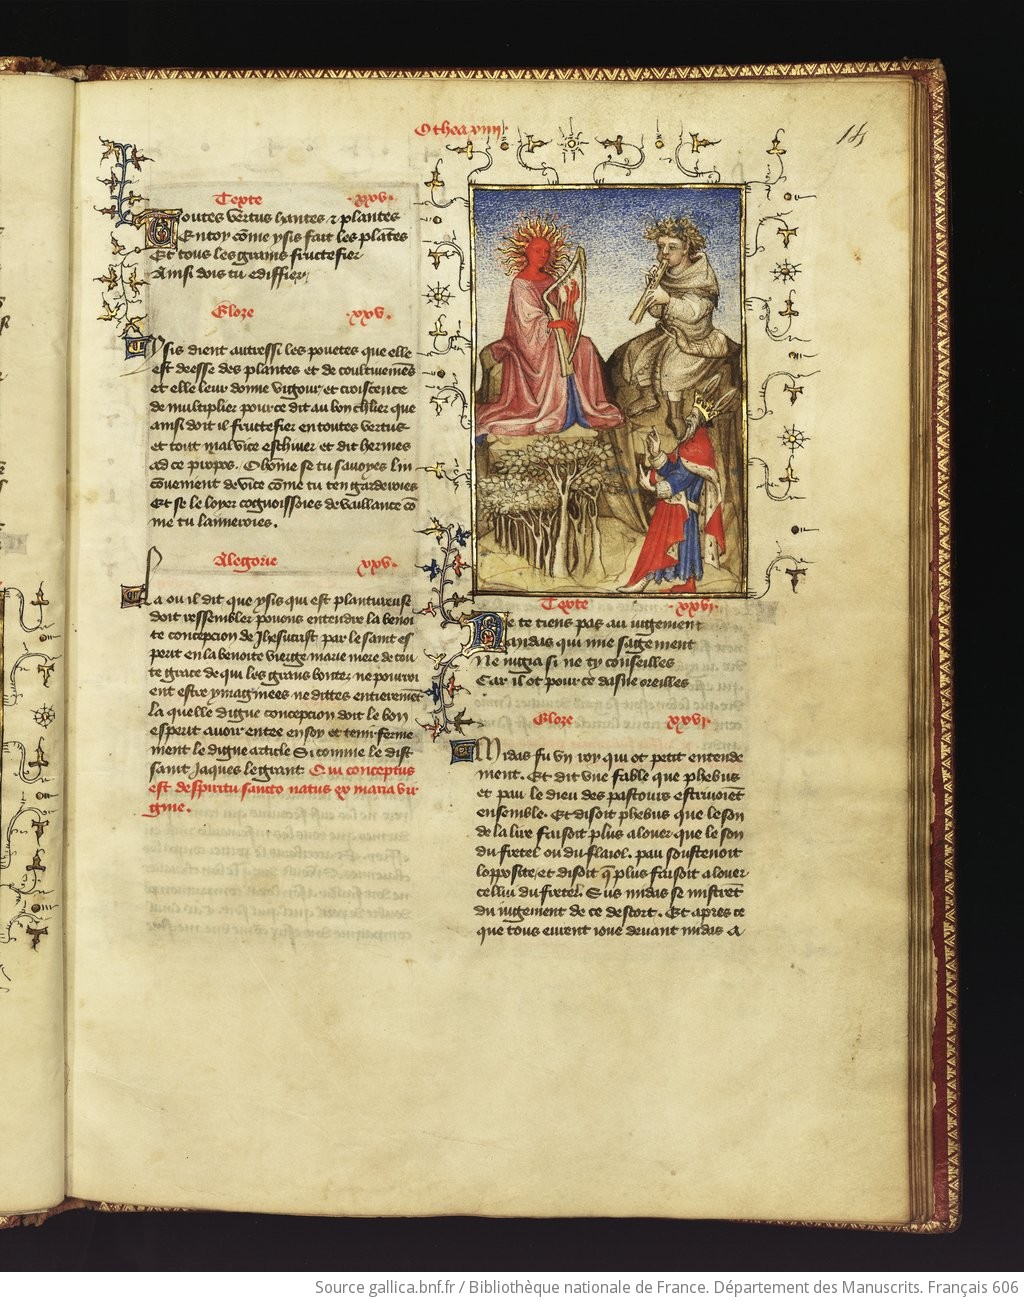 Othea viiii
Texte .xxv.
Toutes vertus hantes z plantes
En toy cõme ysis fait les plãtes
Et tous les grains fructefier
Ainsi dois tu ediffier
Gloze .xxv.
Ysis dient autressi les pouetes que elle
est deesse des plantes et de coultivemẽs
et elle leur donne vigour et croiscence
de multiplier pour ce dit au bon chlier que
ainsi doit il fructefier en toutes vertus
et tout mal vice eschiver et dit hermes
ad ce propos. O hõme se tu savoyes l'in
cõvement de vice cõme tu ten garderoies
Et se le loyer cognoissoies de vaillance cõ
me tu lameroies.
Alegorie xxv.
La ou il dit que ysis qui est plantureuse
doit ressembler pouons entendre la benoi
te concepcion de Jhesucrist par le saint es
perit en la benoite vierge marie mere de tou
te grace de qui les grans bontez ne pourroi
ent estre ymaginees ne dittes entieremet
la quelle digne concepcion doit le bon
esperit avoir entee en soy et tenir ferme
ment le digne article Si comme le dist
saint Jaques le grant Qui conceptus
est de spiritu sancto natus ex maria vir
gine.
Texte .xxvi.
Ne te tiens pas au jugement
Mandas qui mie sagement
Ne juga si ne ty conseilles
Car il ot pour ce dasne oreilles
Gloze xxvi.
Midas fu un roy qui ot petit entende
ment. Et dit une fable que phebus
et pau le dieu des pastours estrivoiẽt
ensemble. Et disoit phebus que le son
de la lire faisoit plus a louer que le son
du fretel ou du flaiol. pau soustenoit
lopposite et disoit q̃ plus faisoit a louer
cellui du fretel. Sus midas se mistrẽt
du jugement de ce descort. Et apres ce
que tous eurent joué devant midas a
Source gallica.bnf.fr / Bibliothèque nationale de France. Département des Manuscrits. Français 606